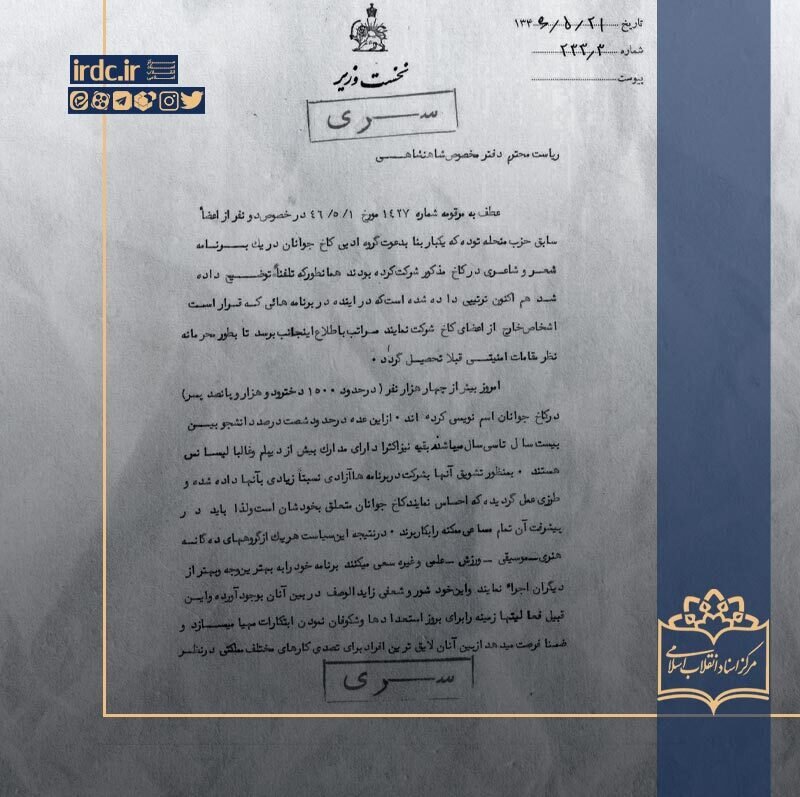 irdc.ir
مرکز اسناد انقلاب اسلامی
تاریخ ۱۳۴۶/۵/۲۱
شماره ۲۳۳٫۳
پیوست
نخست وزیر
سری
ریاست محترم دفتر مخصوص شاهنشاهی
عطف به مرقومه شماره ۱۴۲۷ مورخ ۴۶/۵/۱ در خصوص دو نفر از اعضاً
سابق حزب منحله توده که یکبار بنا بدعوت گروه ادبی کاخ جوانان در یك برنامه
شعر و شاعری در کاخ مذکور شرکت کرده بودند همانطور که تلفناً توضیح داده
شد هم اکنون ترتیبی داده شده است که در آینده در برنامه هائی که قرار است
اشخاص خارج از اعضای کاخ شرکت نمایند مراتب باطلاع اینجانب برسد تا بطور محرمانه
نظر مقامات امنیتی قبلا تحصیل گردد ۰
امروز بیش از چهار هزار نفر ( در حدود ۱۵۰۰ دختر و دو هزار و پانصد پسر )
در کاخ جوانان اسم نویسی کرده اند ۰ از این عده در حدود شصت درصد دانشجو بیسن
بیست سال تا سی سال میباشند بقیه نیز اکثرا دارای مدارك بیش از دیپلم و غالبا لیسانس
هستند ۰ بمنظور تشویق آنها بشرکت در برنامه ها آزادی نسبتاً زیادی بآنها داده شده و
طوری عمل گردیده که احساس نمایند کاخ جوانان متعلق بخودشان است و لذا باید در
پیشرفت آن تمام مساعی ممکنه را بکار برند ۰ در نتیجه این سیاست هر یك از گروههای ده گانه
هنری ـ موسیقی ـ ورزش ـ علمی و غیره سعی میکنند برنامه خود را به بهترین وجه و بهتر از
دیگران اجراء نمایند و این خود شور و شعفی زاید الوصف در بین آنان بوجود آورده و این
قبیل فعالیتها زمینه را برای بروز استعدادها و شکوفان نمودن ابتکارات مهیا میسازد و
ضمنا فرصت میدهد از بین آنان لایق ترین افراد برای تصدی کارهای مختلف مملکتی در نظر
سری
مرکز اسناد انقلاب اسلامی